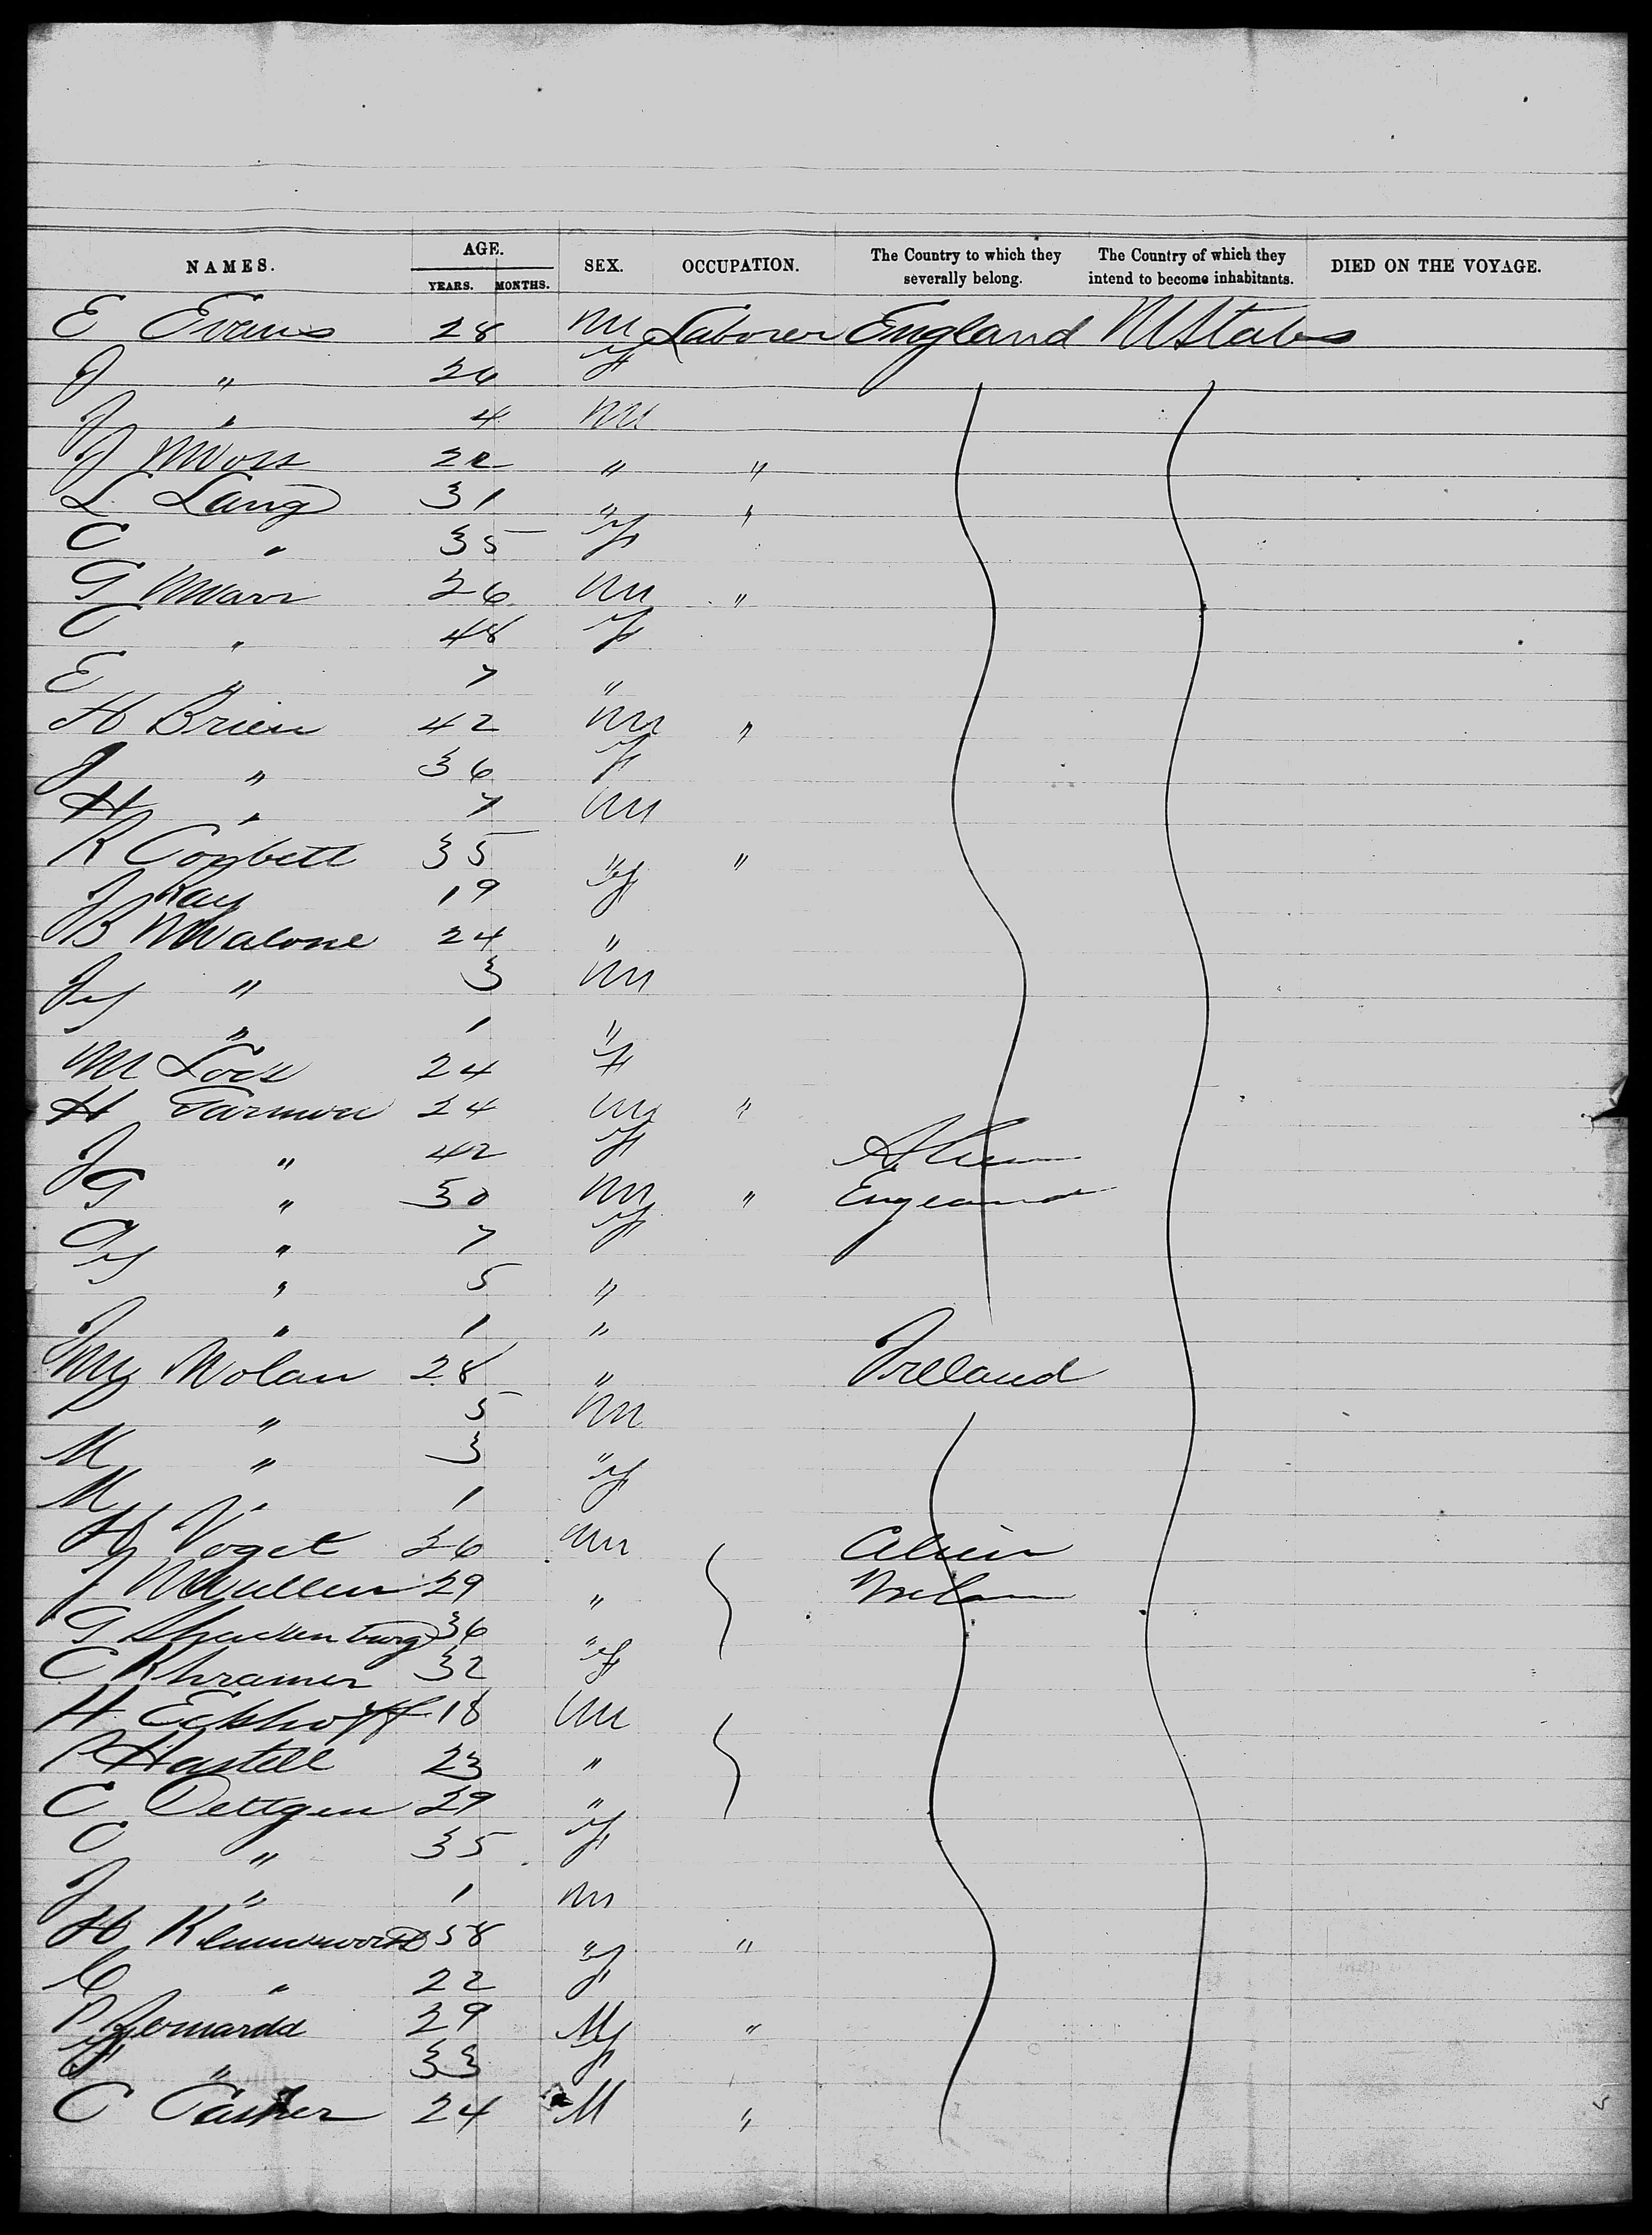 NAMES. AGE. SEX. OCCUPATION. The Country to which they severally belong. The Country of which they intend to become inhabitants. DIED ON THE VOYAGE.
YEARS. MONTHS.
E Evans 28 M Laborer England U States
J " 26 f
J " 4 M
J Moss 22 " "
L Lang 31 " "
C " 35 f
G Marr 26 M "
C " 48 f
E " 7 "
H Brien 42 M "
J " 36 f
H " 7 M
R Corbett 35 " "
J Kay 19 f
B Malone 24 "
J " 3 M
" 1 "
M Lock 24 f
H 24 M "
J " 42 f
G " 30 M " England
C " 7 f
" 5 "
" 1 "
Nolan 28 " Ireland
" 5 M
M " 3 "
M " 1 f
H Voget 26 M
J Mullen 29 "
G 36 "
C Khramer 32 f
H Eckhoff 18 M
P Hastell 23 "
C Oettgen 29 "
C " 35 f
J " 1 M
H 58 " "
C " 22 f
29 M "
" 33 f
C Casher 24 M "